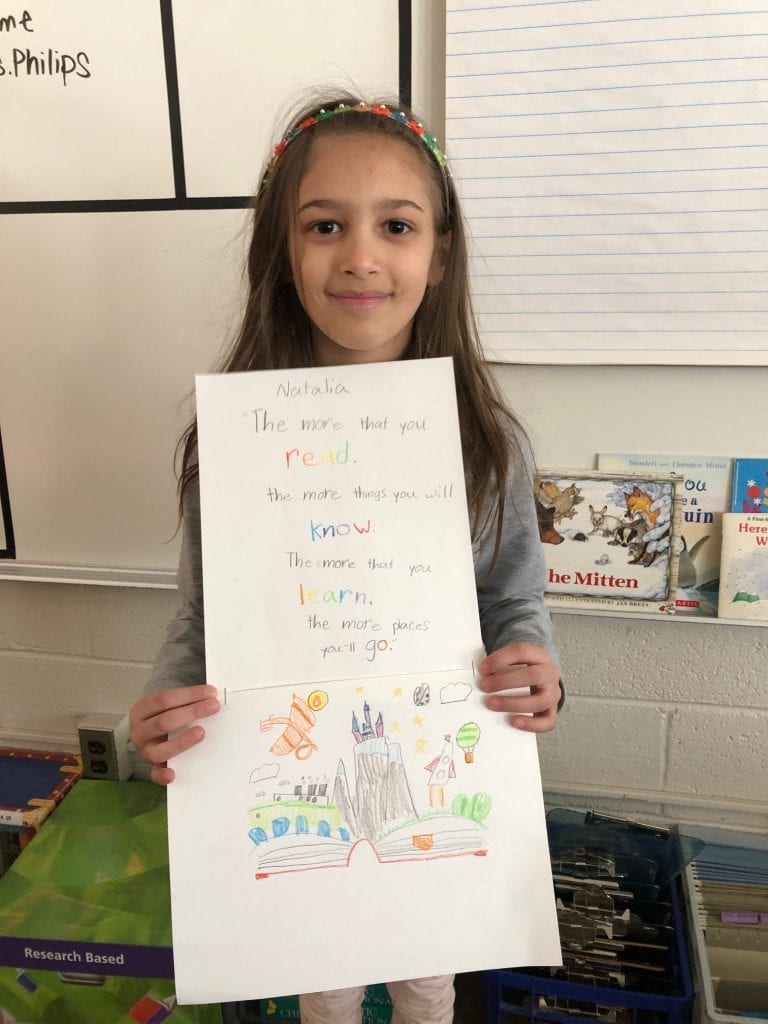 me
s.Philips
Natalia
"The more that you
read.
the more things you will
know.
The more that you
learn,
the more places
you'll go."
Wendell and Florence Minor
you
e a
uin
he Mitten
AND ILLUSTRATED BY JAN BRETT
ASTIC
A First-S
Here
W
Research Based